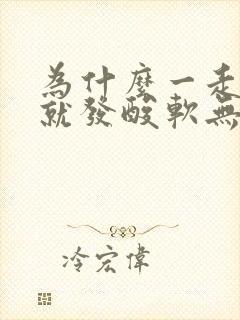 為什麼一走
就發酸軟無
冷宏偉